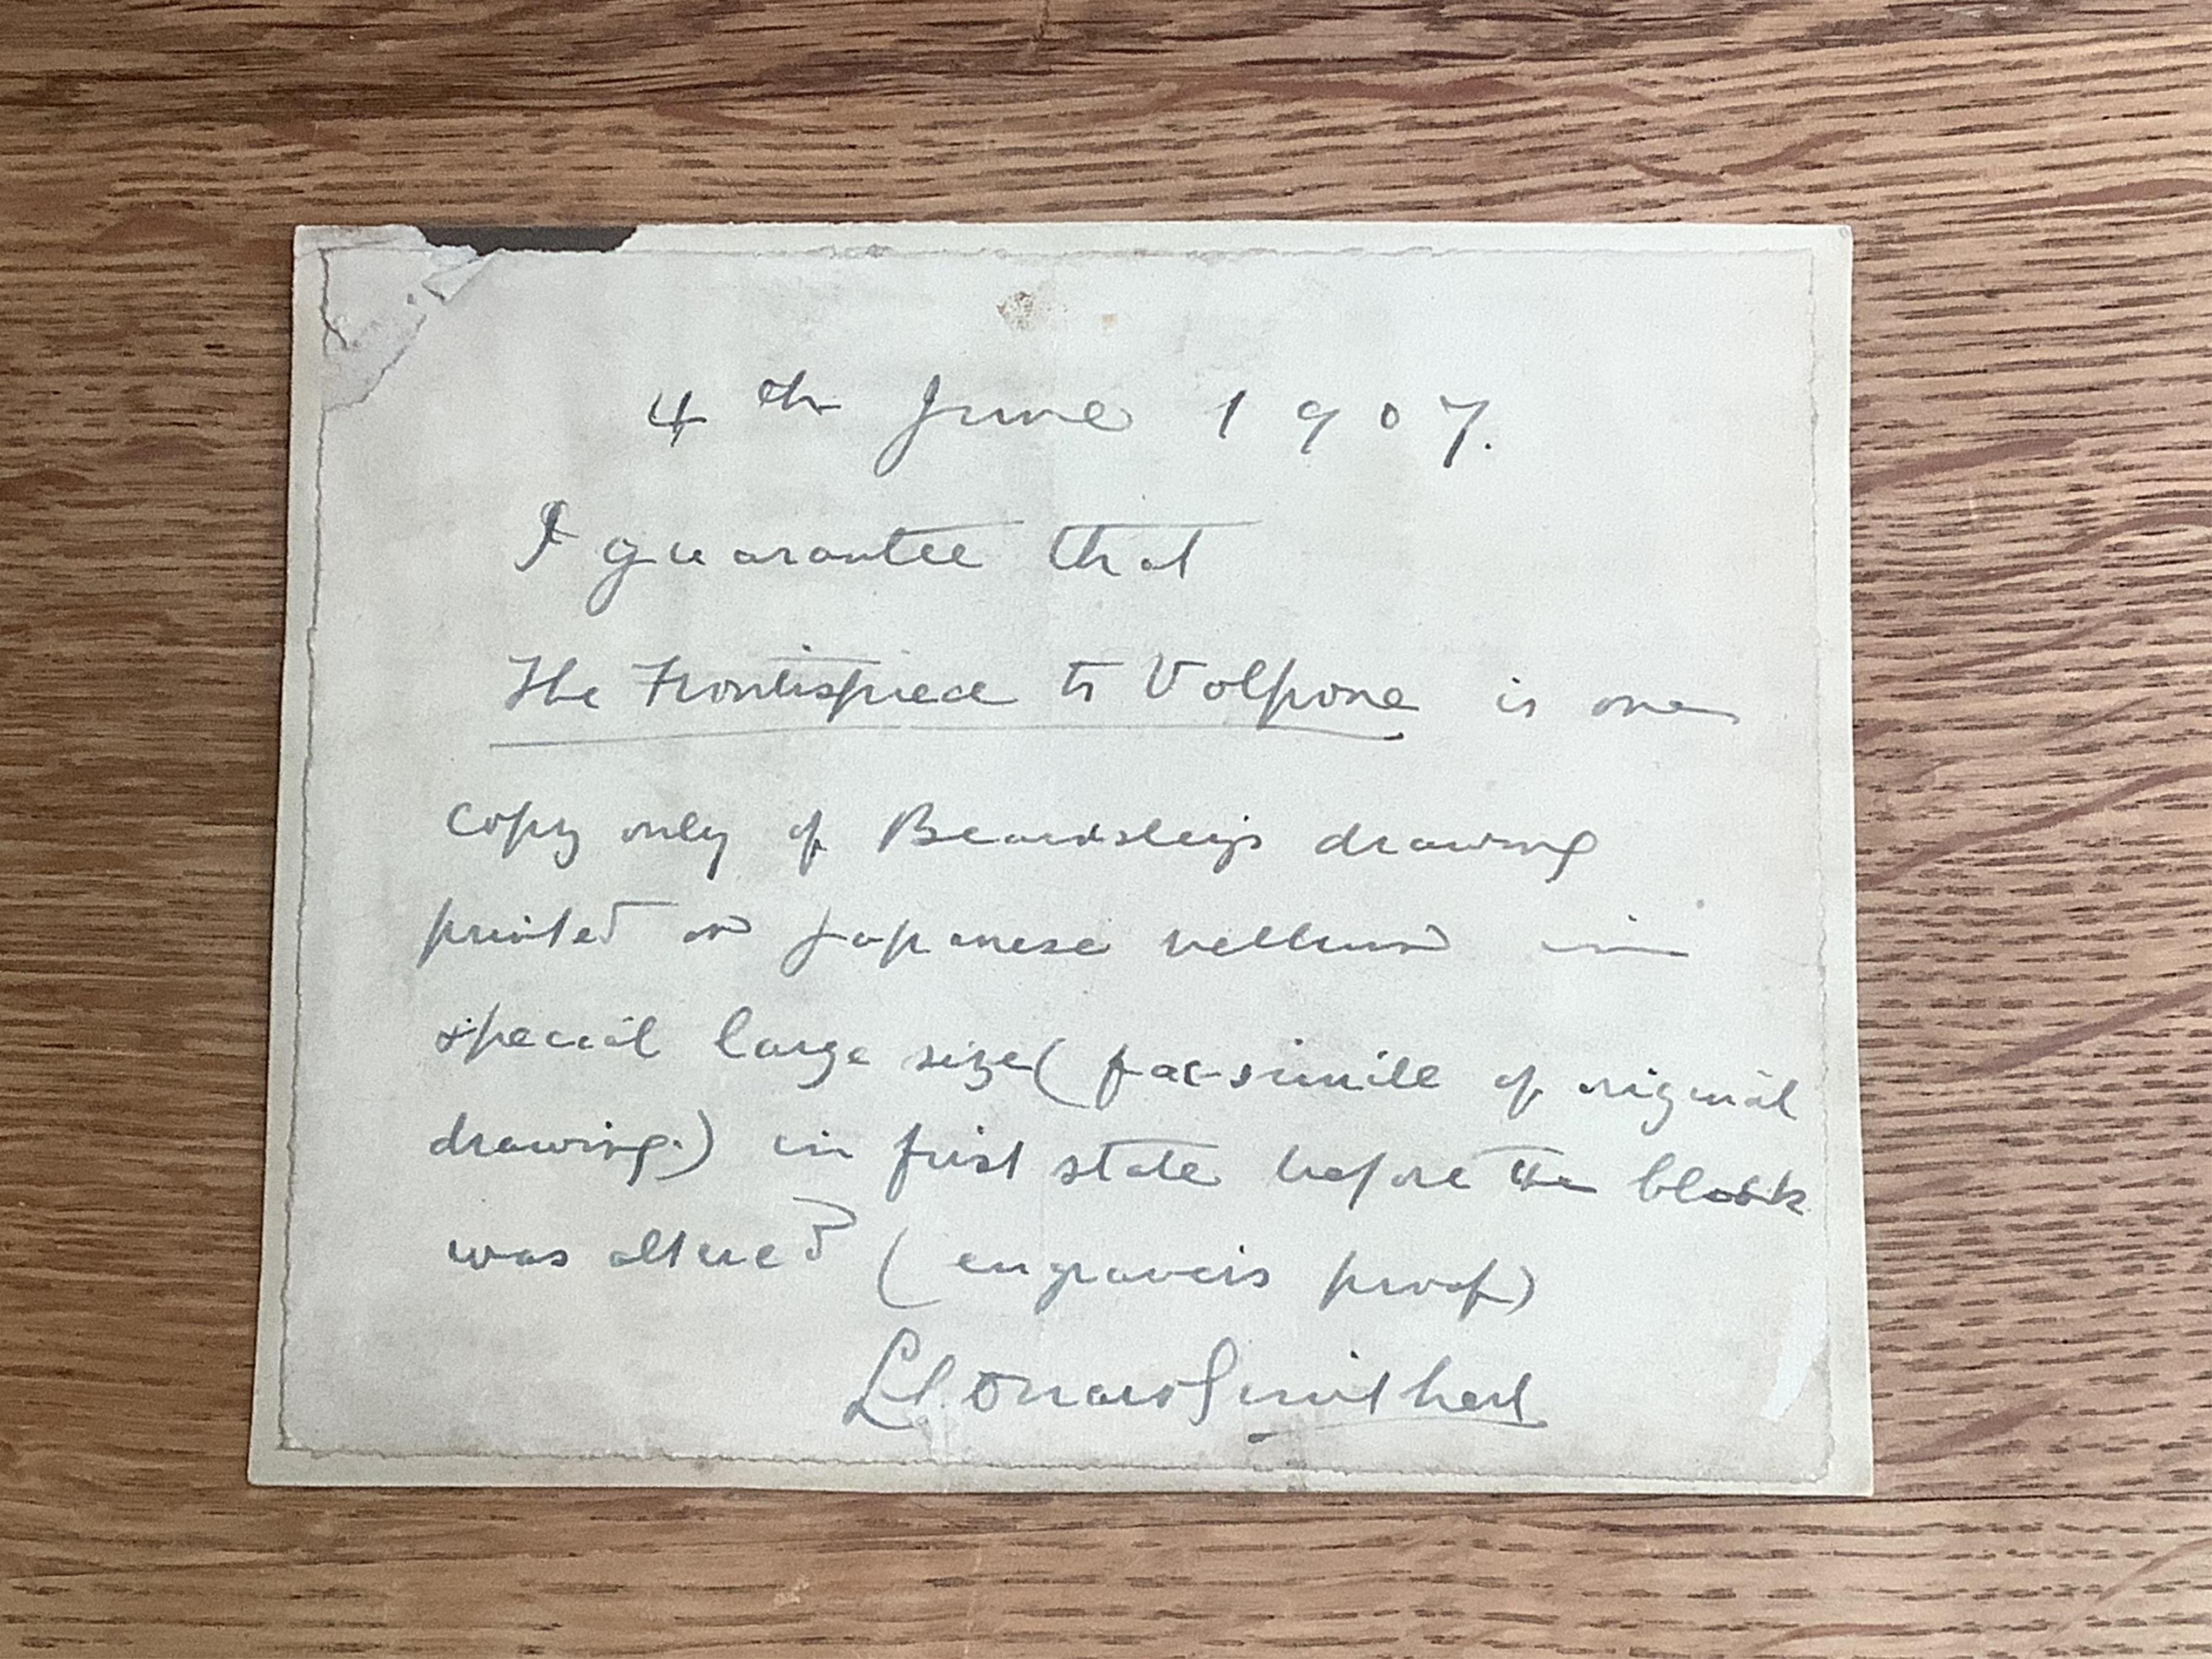 4th June 1907.
I guarantee that
The Frontispiece to Volpone is one
copy only of Beardsley's drawing
printed on Japanese vellum in
special large size (fac-simile of original
drawing.) in first state before the block
was altered (engravers proof)
Leonard Smithers